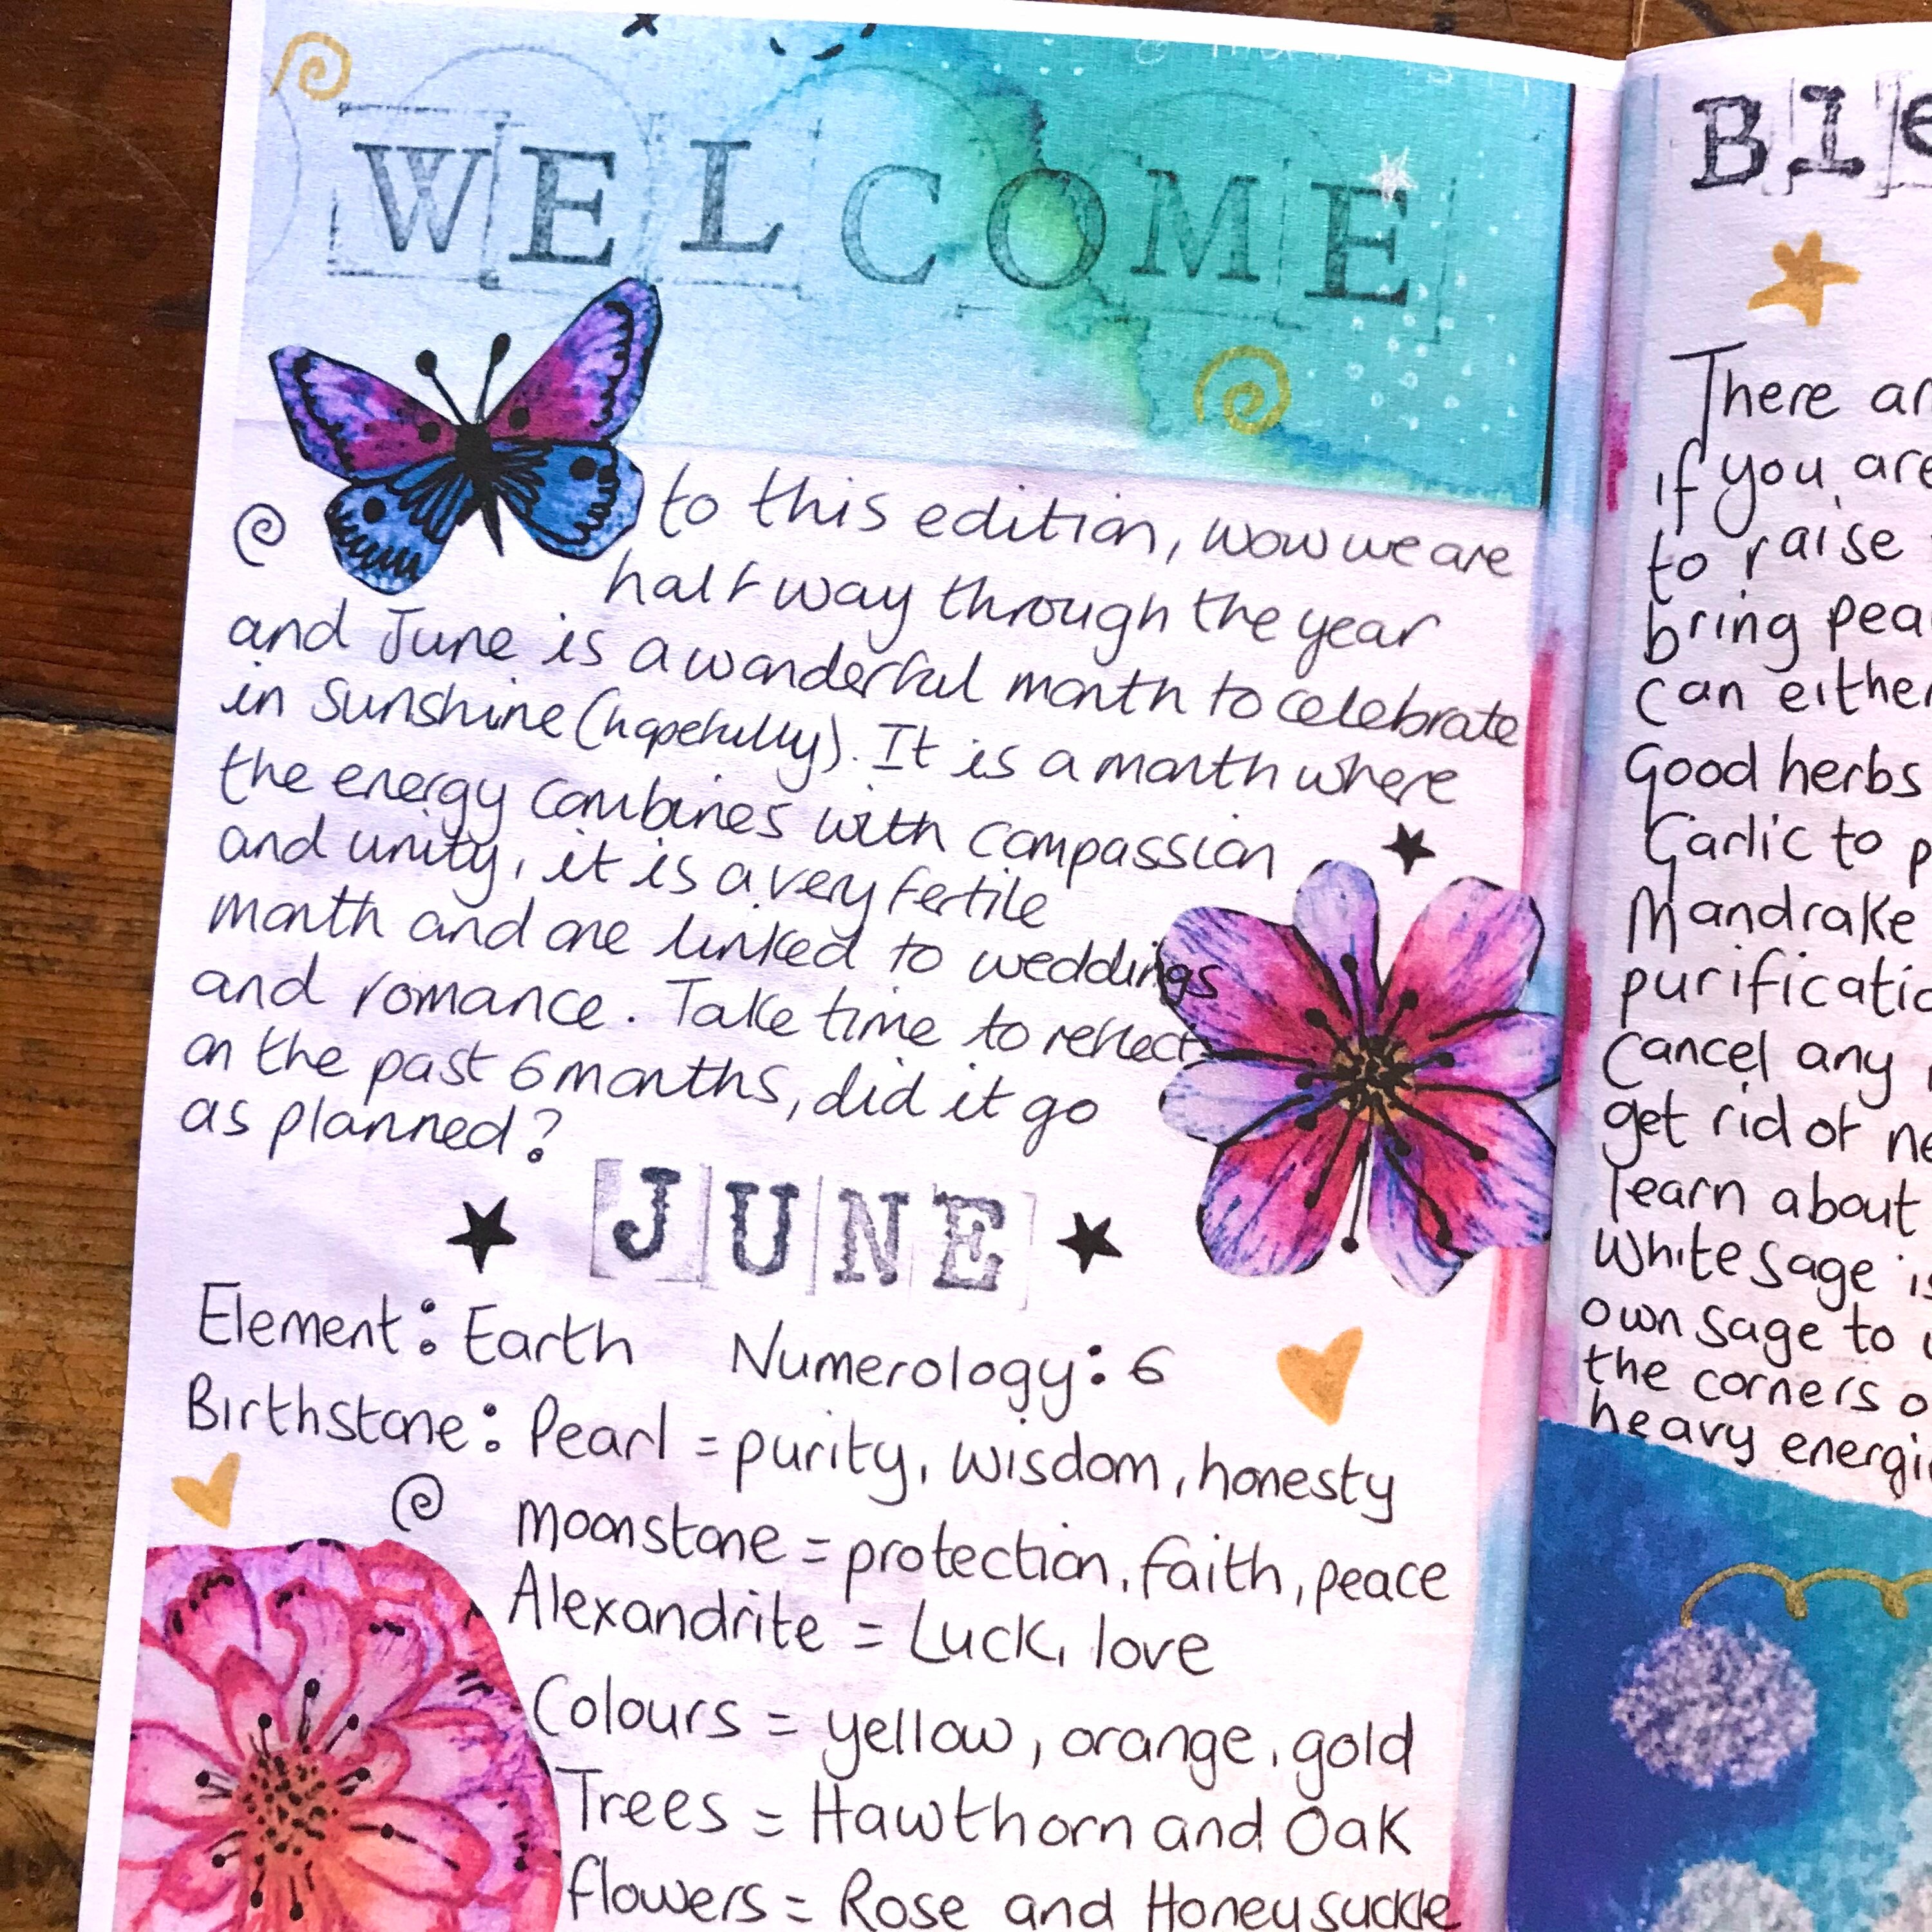 WELCOME
to this edition, wow we are
half way through the year
and June is a wonderful month to celebrate
in Sunshine (hopefully). It is a month where
the energy combines with compassion
and unity, it is a very fertile
month and one linked to weddings
and romance. Take time to reflect
on the past 6 months, did it go
as planned?
JUNE
Element: Earth Numerology: 6
Birthstone: Pearl = purity, wisdom, honesty
moonstone = protection, faith, peace
Alexandrite = Luck, love
Colours = yellow, orange, gold
Trees = Hawthorn and Oak
flowers = Rose and Honeysuckle
There
if you are
to raise
bring
can either
Good herbs
Garlic to
Mandrake
cancel any
get rid of
learn about
White sage
own sage to
the corners
heavy